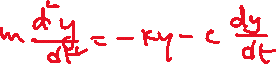 m d²y/dt² = -ky - c dy/dt